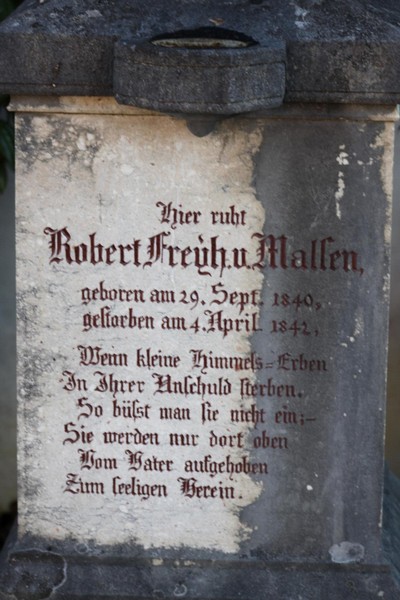 Hier ruht
Robert Freÿh. v. Malsen,
geboren am 29. Sept. 1840,
gestorben am 4. April 1842,
Wenn kleine Himmels=Erben
In Ihrer Unschuld sterben,
So büsst man sie nicht ein;–
Sie werden nur dort oben
Vom Vater aufgehoben
Zum seeligen Verein.